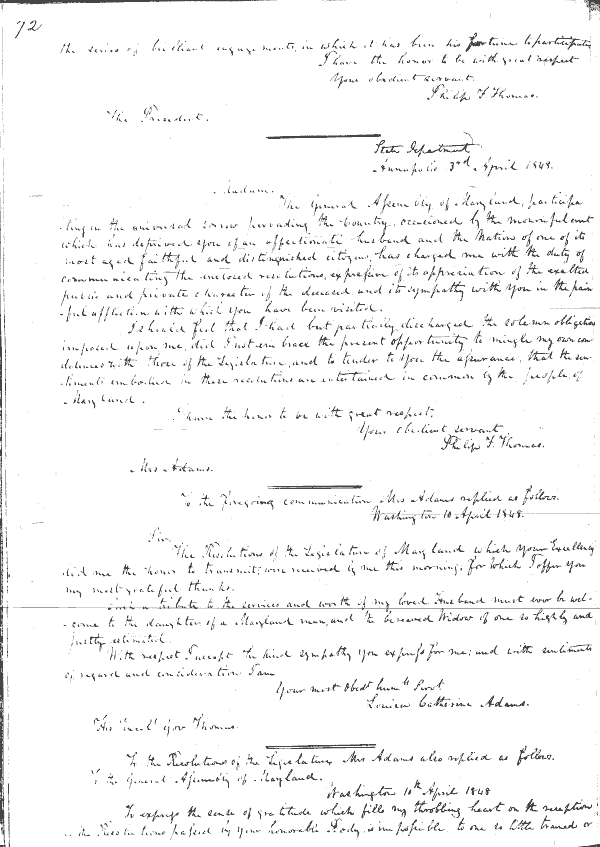 72
the series of brilliant engagements, in which it has been his fortune to participate
I have the honor to be with great respect
Your obedient servant.
Philip F. Thomas.
The President.
State Department
Annapolis 3rd April 1848.
Madam.
The General Assembly of Maryland, participa
ting in the universal sorrow pervading the Country, occasioned by the mournful event
which has deprived you of an affectionate husband and the Nation of one of its
most aged faithful and distinguished citizens, has charged me with the duty of
communicating the enclosed resolutions, expressive of its appreciation of the exalted,
public and private character of the deceased and its sympathy with you in the pain
ful affliction with which you have been visited.
I should feel that I had but partially discharged the solemn obligation
imposed upon me, did I not embrace the present opportunity to mingle my own con
dolences with those of the Legislature, and to tender to you the assurance, that the sen
timents embodied in these resolutions are entertained in common by the people of
Maryland.
I have the honor to be with great respect.
Your obedient servant
Philip F. Thomas.
Mrs Adams.
To the foregoing communication Mrs Adams replied as follows.
Washington 10 April 1848.
Sir
The Resolutions of the Legislature of Maryland which your Excellency
did me the honor to transmit, were received by me this morning, for which I offer you
my most grateful thanks.
Such a tribute to the services and worth of my loved Husband must ever be wel-
-come to the daughter of a Maryland man, and the bereaved Widow of one so highly and
justly estimated.
With respect I accept the kind sympathy you express for me; and with sentiments
of regard and consideration I am
Your most Obedt humle Servt
Louisa Catherine Adams.
His Excel'y Gov Thomas.
To the Resolutions of the Legislature, Mrs Adams also replied as follows.
To the General Assembly of Maryland.
Washington 10th April 1848
To express the sense of gratitude which fills my throbbing heart on the reception
of the Resolutions passed by your honorable Body, is impossible to one so little trained or